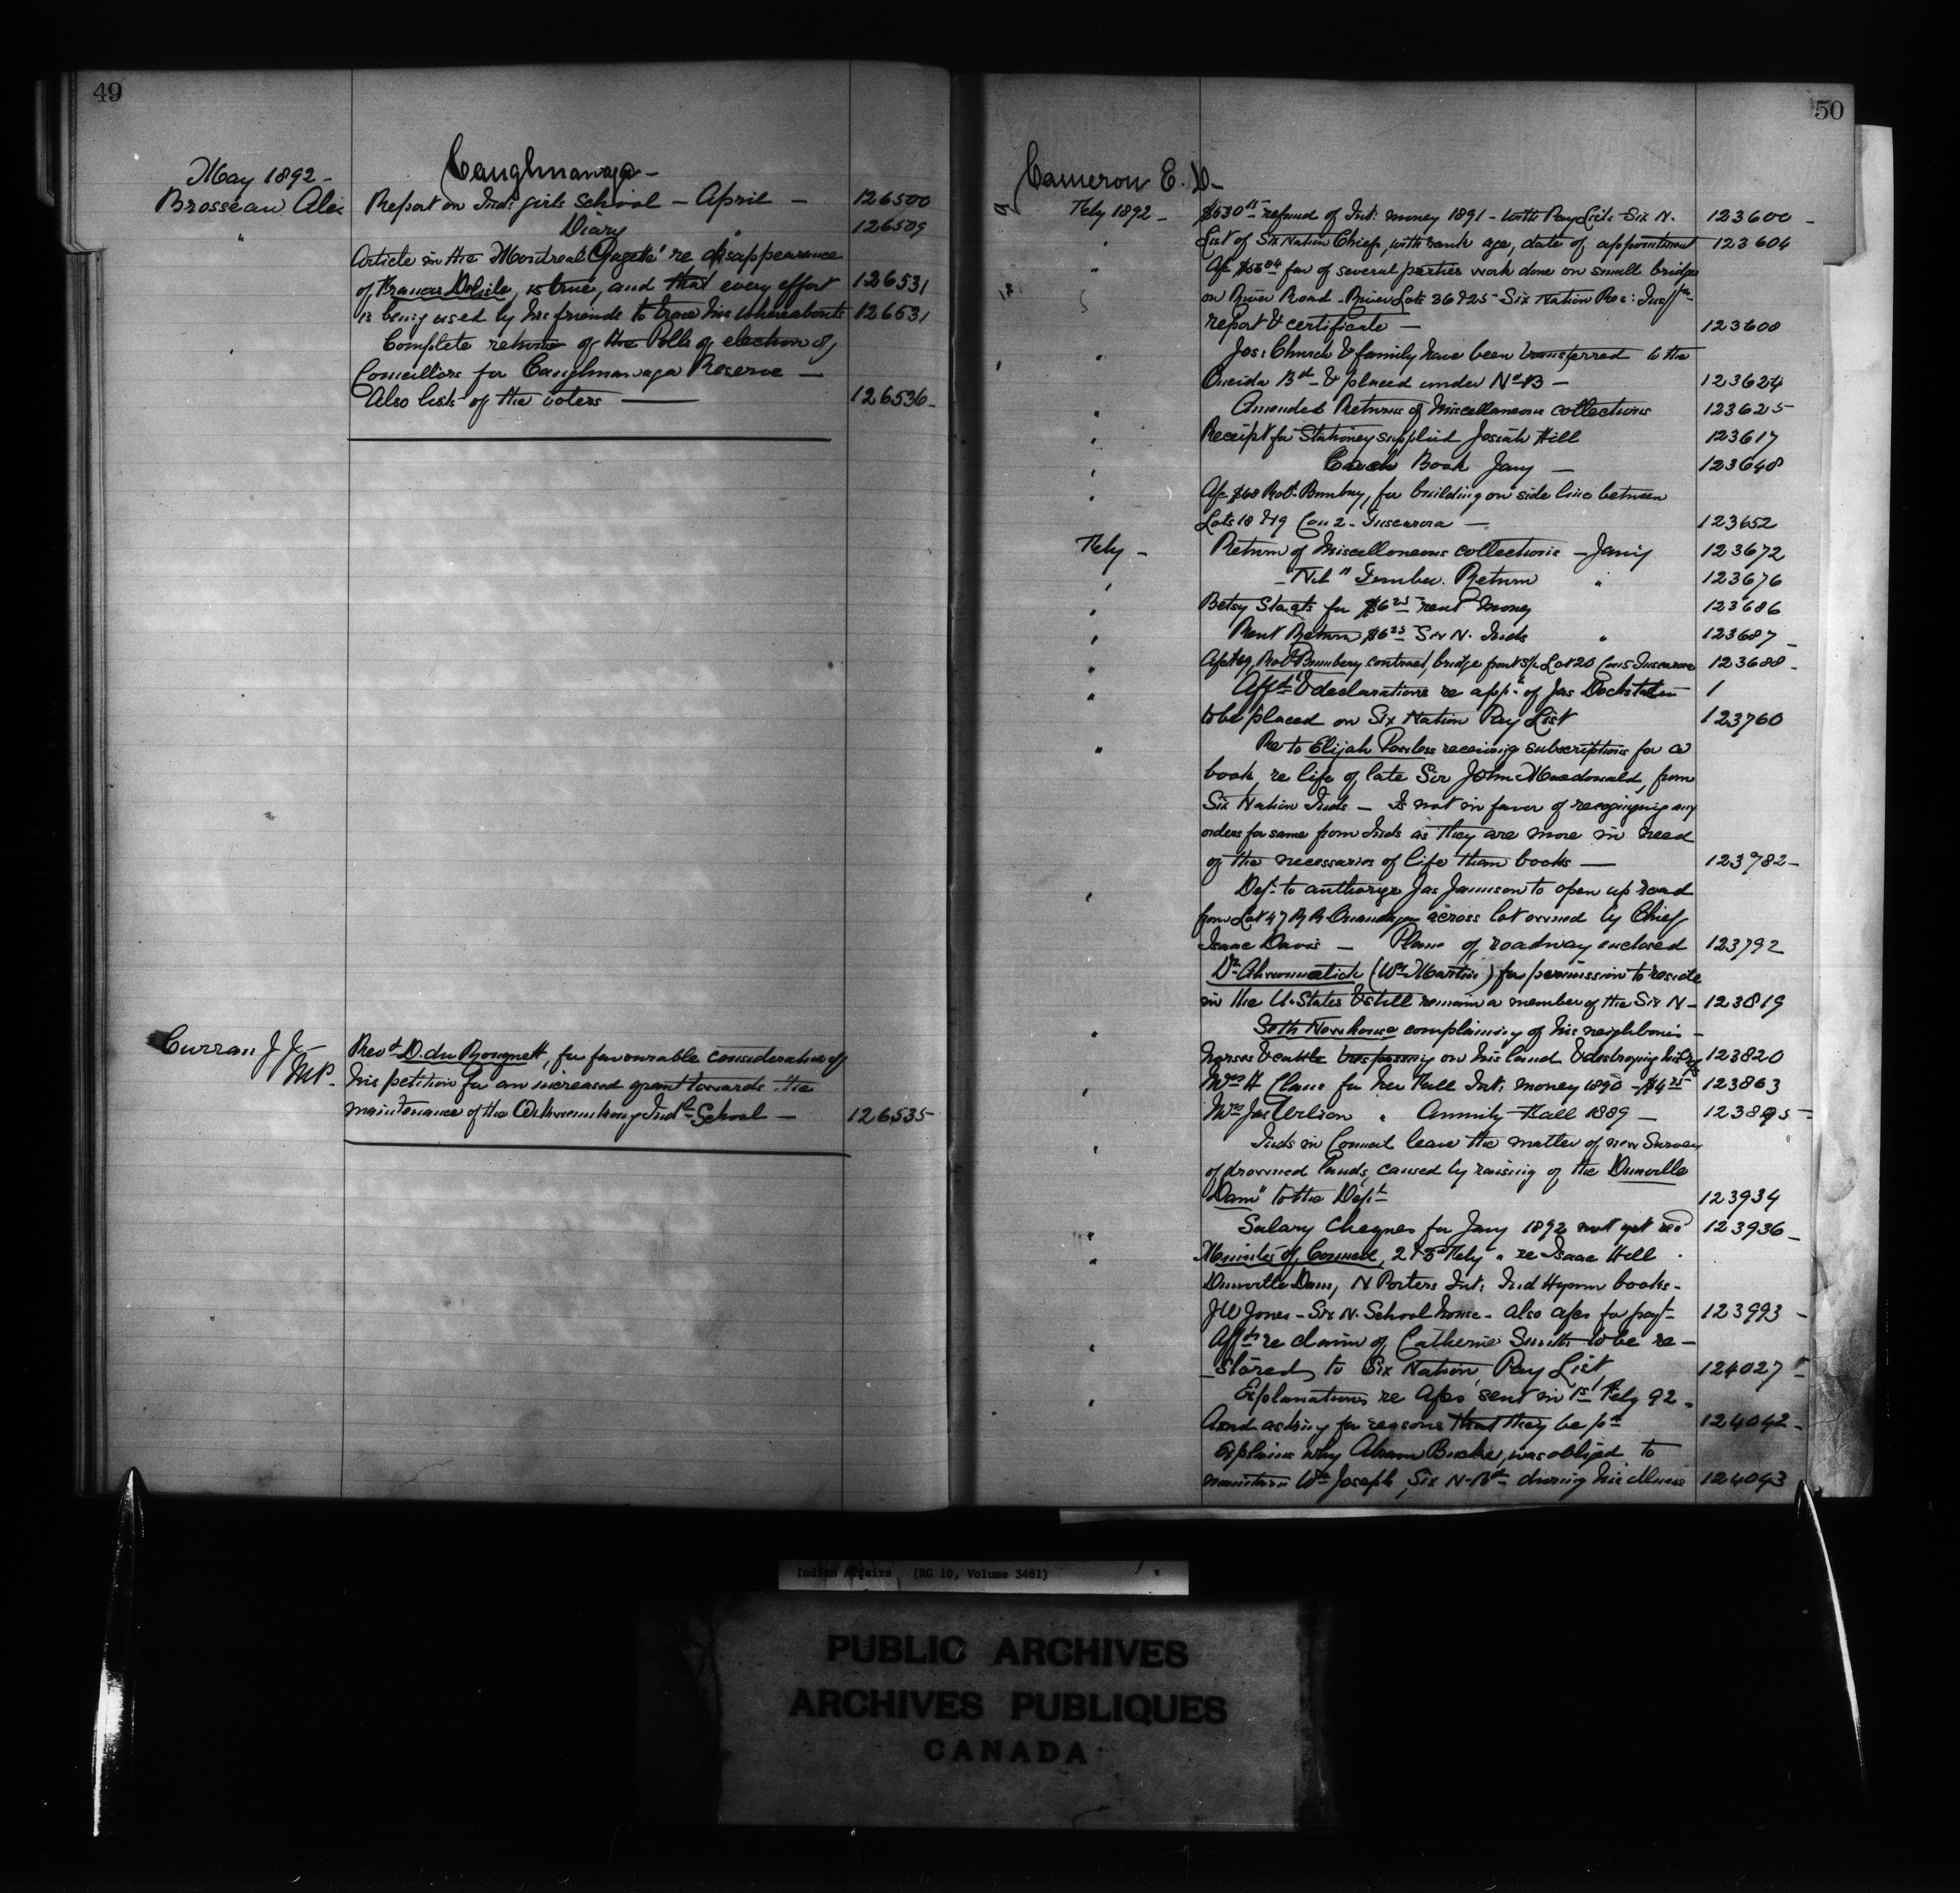 49
Caughnawaga -
May 1892 -
Brosseau Alex Report on Inds girls School - April - 126500
" Diary " 126509
Article in the Montreal Gazette re disappearance
of Francis Delisle, is true, and that every effort 126531
is being used by his friends to trace his whereabouts 126531
Complete returns of the Polls of election of
Councillors for Caughnawaga Reserve -
Also lists of the voters - 126536-
Curran J J Revd D. du Rouquett, for favourable consideration of
MP. his petition for an increased grant towards the
maintenance of the Indl School - 126535
50
Cameron E. D-
Feby 1892 - refund of Int: money 1891 - with Pay Lists - Six N. 123600 -
" List of Six Nation Chiefs, with rank age, date of appointment 123604
" A/c fav of several parties work done on small bridge
on River Road - River Lots 36 & 25 - Six Nation Res:
report & certificate - 123608
" Jos: Church & family have been transferred to the
Oneida Bd & placed under No 13 - 123624
" Amended Returns of Miscellaneous collections 123625
" Receipt for Stationery supplied Josiah Hill 123617
" Cash Book Jany - 123648
" A/c $68 Robt Bumbry, for building on side line between
Lots 18 & 19 Con 2 - Tuscarora - 123652
Feby - Return of Miscellaneous collections - Jany 123672
" - "Nil" Timber Return " 123676
" Betsy Staats for $6 25 rent money 123686
" Rent Return $6 25 Six N. Inds " 123687 -
" Robt Bumbery contract, bridge front Lot 20 Con 5 Tuscarora 123688 -
" Affdts & declarations re appn of Jas Dockstader
to be placed on Six Nation Pay List 123760
" Re to Elijah Powless receiving subscriptions for a
book, re life of late Sir John Macdonald, from
Six Nation Inds - Is not in favor of recognizing any
orders for same from Inds as they are more in need
of the necessaries of life than books - 123782 -
" Dept to authorize Jas Jamieson to open up road
from Lot 47 R R Onondaga across lot owned by Chief
Isaac Davis - Plan of roadway enclosed 123792
Dr (Wm Martin) for permission to reside
in the U. States & still remain a member of the Six N - 123819
" Seth Newhouse complaining of his neighbours -
horses & cattle trespassing on his land & destroying his 123820
" Mrs H Claus for her Fall Int: money 1890 - $4 25 123863
Mrs Jas " Annuity Fall 1889 - 123895 -
" Inds in Council leave the matter of new Survey
of drowned lands, caused by raising of the Dunville
Dam" to the Dept 123934
" Salary Cheques for Jany 1892 not yet recd 123936 -
" Minutes of Council, 2 & 3d Feby " re Isaac Hill
Dunville Dam, N Porters Int: Ind Hymn books -
J W Jones - Six N. School house - also a/cs for payt - 123993 -
" Affdts re claim of Catherine Smith to be re -
- stored to Six Nation Pay List 124027 -
" Explanations re A/cs sent in 1st Feby 92.
And asking for reasons that they be pd 124042 -
Explains why Abram was obliged to
maintain Wm Joseph, Six N. Bd during his illness 124043
Indian Affairs (RG 10, Volume 3461)
PUBLIC ARCHIVES
ARCHIVES PUBLIQUES
CANADA